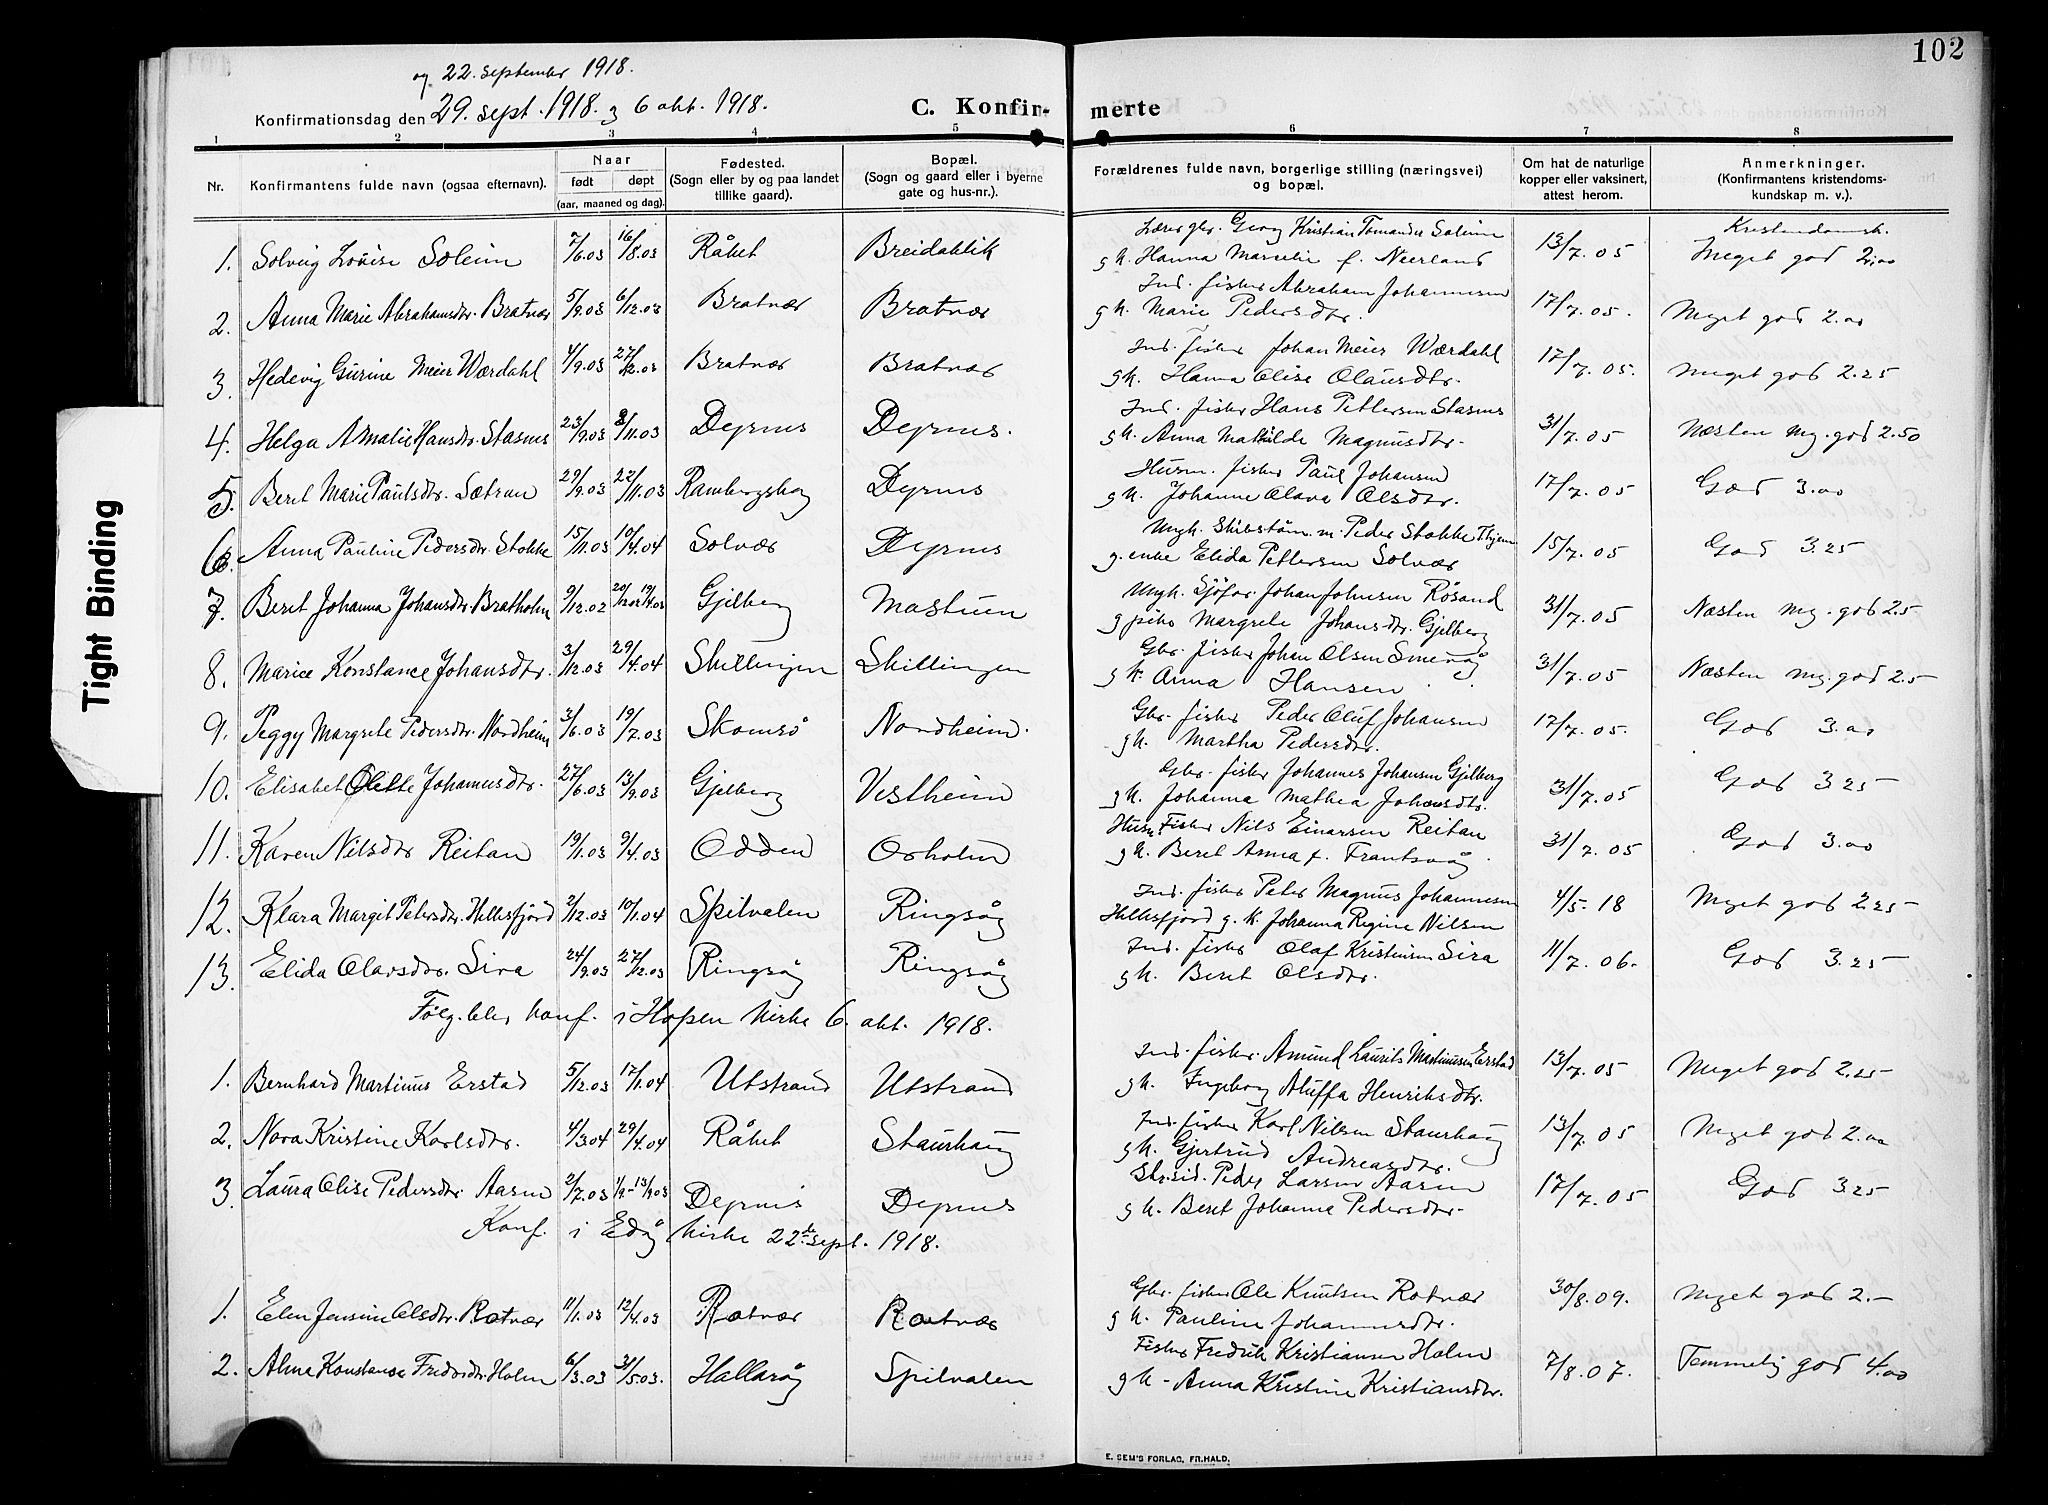 102
og 22. september 1918.
Konfirmationsdag den 29. sept. 1918. og 6 okt. 1918.
C. Konfir-merte
1 2 3 4 5 6 7 8
Nr. Konfirmantens fulde navn (ogsaa efternavn). Naar født døpt (aar, maaned og dag). Fødested. (Sogn eller by og paa landet tillike gaard). Bopæl. (Sogn og gaard eller i byerne gate og hus-nr.). Forældrenes fulde navn, borgerlige stilling (næringsvei) og bopæl. Om hat de naturlige kopper eller vaksinert, attest herom. Anmerkninger. (Konfirmantens kristendoms-kundskap m. v.).
1. Solveig Lovise Soleim 7/6.03 16/8.03 Råket Breidablik Lærer gbr. Georg Kristian Tomander Soleim 13/7.05 Kristendomsk. Meget god 2.00
g k. Hanna Marselie f. Neerland
2. Anna Marie Abrahamsdtr. Bratvær 5/9.03 6/12.03 Bratvær Bratvær Ind. fisker Abraham Johannesen 17/7.05. Meget god 2.00
g k. Marie Pedersdtr.
3. Hedevig Gurine Meier Wærdahl 4/9.03 27/12.03 Bratvær Bratvær Ind. fisker Johan Meier Wærdahl 17/7.05. Meget god 2.25
g k. Hanna Olise Olausdtr.
4. Helga Amalie Hansdtr. Stasnes 23/9.03 8/11.03 Dyrnes Dyrnes. Ind. fisker Hans Pettersen Stasnes 31/7.05 Næsten mg. god 2.50
g k. Anna Mathilde Magnusdtr.
5. Beret Marie Paulsdtr. Sætran 29/9.03 22/11.03 Rambergshog Dyrnes Husm. fisker Paul Johansen 17/7.05 God 3.00
g k. Johanne Olava Olsdtr.
6. Anna Pauline Pedersdtr. Stokke 15/11.03 10/4.04 Solvær Dyrnes Ungk. Skibstøm.m. Peder Stokke Thjem 15/7.05 God 3.25
g. enke Elida Pettersen Solvær
7. Beret Johanna Johansdtr. Bratholm 9/12.02 20/12.02 19/4.03 Gjelberg Mastuen Ungk. Sjøfor. Johan Johnsen Røsand 31/7.05 Næsten mg. god 2.5
g pike Margrete Johansdtr. Gjelberg
8. Marie Konstance Johansdtr. 3/12.03 29/4.04 Skillingen Skillingen Gbr. fisker Johan Olsen Smevåg 31/7.05 Næsten mg. god 2.5
g k. Anna Hansen
9. Peggy Margrete Pedersdtr. Nordheim 3/6.03 19/7.03 Skomsö Nordheim. Gbr. fisker Peder Oluf Johansen 17/7.05. God 3.00
g k. Martha Pedersdtr.
10. Elisabet Olette Johannesdtr. 27/6.03 13/9.03 Gjelberg Vestheim Gbr. fisker Johannes Johansen Gjelberg 31/7.05 God 3.25
g k. Johanna Mathea Johansdtr.
11. Karen Nilsdtr Reitan 19/1.03 9/4.03 Odden Orholm Husm. Fisker Nils Einarsen Reitan 31/7.05 God 3.00
g k. Beret Anna f. Frantsvåg
12. Klara Margit Petersdtr. Hellesfjord 2/12.03 10/1.04 Spilvalen Ringsøy Ind. fisker Peter Magnus Johannesen 4/5.18 Meget god 2.25
Hellesfjord g. k. Johanna Regine Nilsen
13. Elida Olavsdtr. Sira 24/9.03 27/12.03 Ringsøy Ringsøy Ind. fisker Olaf Kristensen Sira 11/7.06. God 3.25
g k. Beret Olsdtr.
Følg. blev konf. i Hopen kirke 6. okt. 1918.
1. Bernhard Martinus Erstad 5/12.03 17/1.04 Utstrand Utstrand Ind. fisker. Amund Laurits Martinusen Erstad 13/7.05 Meget god 2.25
g k. Ingeborg Aluffa Henriksdtr.
2. Nora Kristine Karlsdtr. 4/3.04 29/4.04 Råket Staurhaug Ind. fisker Karl Nilsen Staurhaug 13/7.05 Meget god 2.00
g k. Gjertrud Andreasdtr.
3. Laura Olise Pedersdtr. Aasen 2/7.03 1/9 - 13/9.03 Dyrnes Dyrnes Str.sid. Peder Larsen Aasen 17/7.05 God 3.25
g k. Beret Johanna Pedersdtr.
Konf. i Edøy kirke 22de sept. 1918.
1. Elen Jensine Olsdtr. Rotvær 11/1.03 12/4.03 Rotvær Rotvær Gbr. fisker Ole Knutsen Rotvær 30/8.09. Meget god 2.-
g k. Pauline Johannesdtr.
2. Alma Konstanse Fredriksdtr. Holm 6/3.03 31/5.03. Hallarøy Spilvalen Fisker Fredrik Kristiansen Holm 7/8.07. Temmelig god 4.00
g k. Anna Kristine Kristiansdtr.
E. SEM'S FORLAG, FR.HALD.
Tight Binding